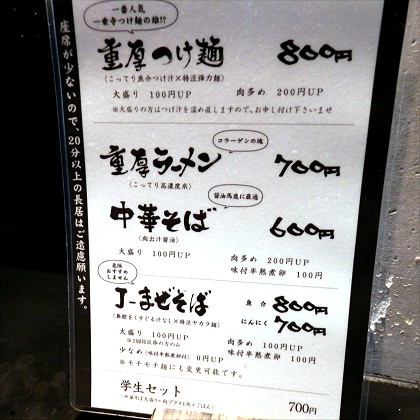 一番人気
一乗寺つけ麺の雄!?
重厚つけ麺 800円
(こってり魚介つけ汁×特注弾力麺)
大盛り 100円UP 肉多め 200円UP
※大盛りの方はつけ汁を温め直しますので、お申し付け下さいませ
コラーゲンの塊
重厚ラーメン 700円
(こってり高濃度系)
醤油馬鹿に最適
中華そば 600円
大盛り 100円UP
肉多め 200円UP
味付半熟煮卵 100円
危険
おすすめ
しません
J-まぜそば
魚介 800円
にんにく 700円
大盛り 100円UP
肉多め 100円UP
味付半熟煮卵 100円
少なめ(味付半熟煮卵付) 0円UP
※モチモチ麺にも変更可能です。
学生セット 700円
座席が少ないので、20分以上の長居はご遠慮願います。